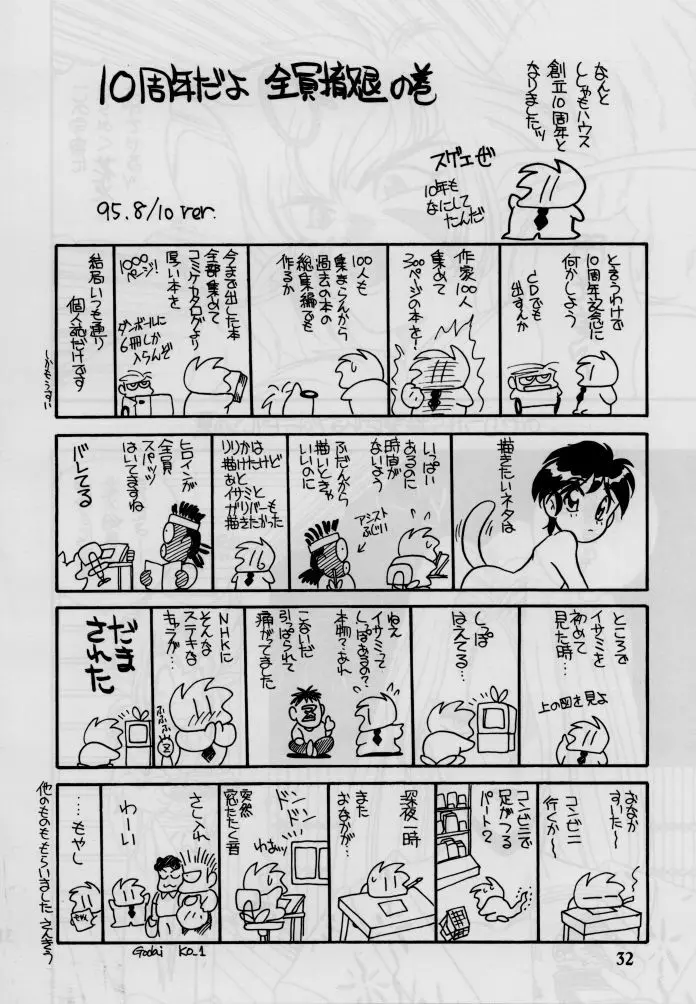 10周年だよ 全員撤退の巻
95.8/10 ver.
なんと
ししゃもハウス
創立10周年と
なりましたッ
スゲエぜ
10年も
なにして
たんだ
と言うわけで
10周年記念に
何かしよう
CDでも
出すんか
作家100人
集めて
300ページの本を!
100人も
集まらんから
過去の本の
総集編でも
作るか
今まで出した本
全部集めて
コミケカタログより
厚い本を
1000ページ!
ダンボールに
6冊しか
入らんぞ
結局いつも通り
個人誌だけです
しかもうすい
描きたいネタは
いっぱい
あるのに
時間が
ないよう
ふだんから
描いときゃ
いいのに
アシスト
ふじい
りりかは
描けたけど
あと
イサミと
ガリバーも
描きたかった
ヒロインが
全員
スパッツ
はいてますね
バレてる
ところで
イサミを
初めて
見た時…
上の図を見よ
しっぽ
はえてる…
ねえ
イサミって
しっぽあるの?
本物?あれ
こないだ
引っぱられて
痛がってました
NHKに
そんな
ステキな
キャラが…
ふふふ
だま
された
おなか
すいた〜
コンビニ
行くか〜
コンビニで
足がつる
パート2
深夜一時
また
おなかが…
ドン
ドン
突然
窓たたく音
わぁッ
さしいれ
わーい
……もやし
他のものももらいました さんきう
Godai Ko_1
32